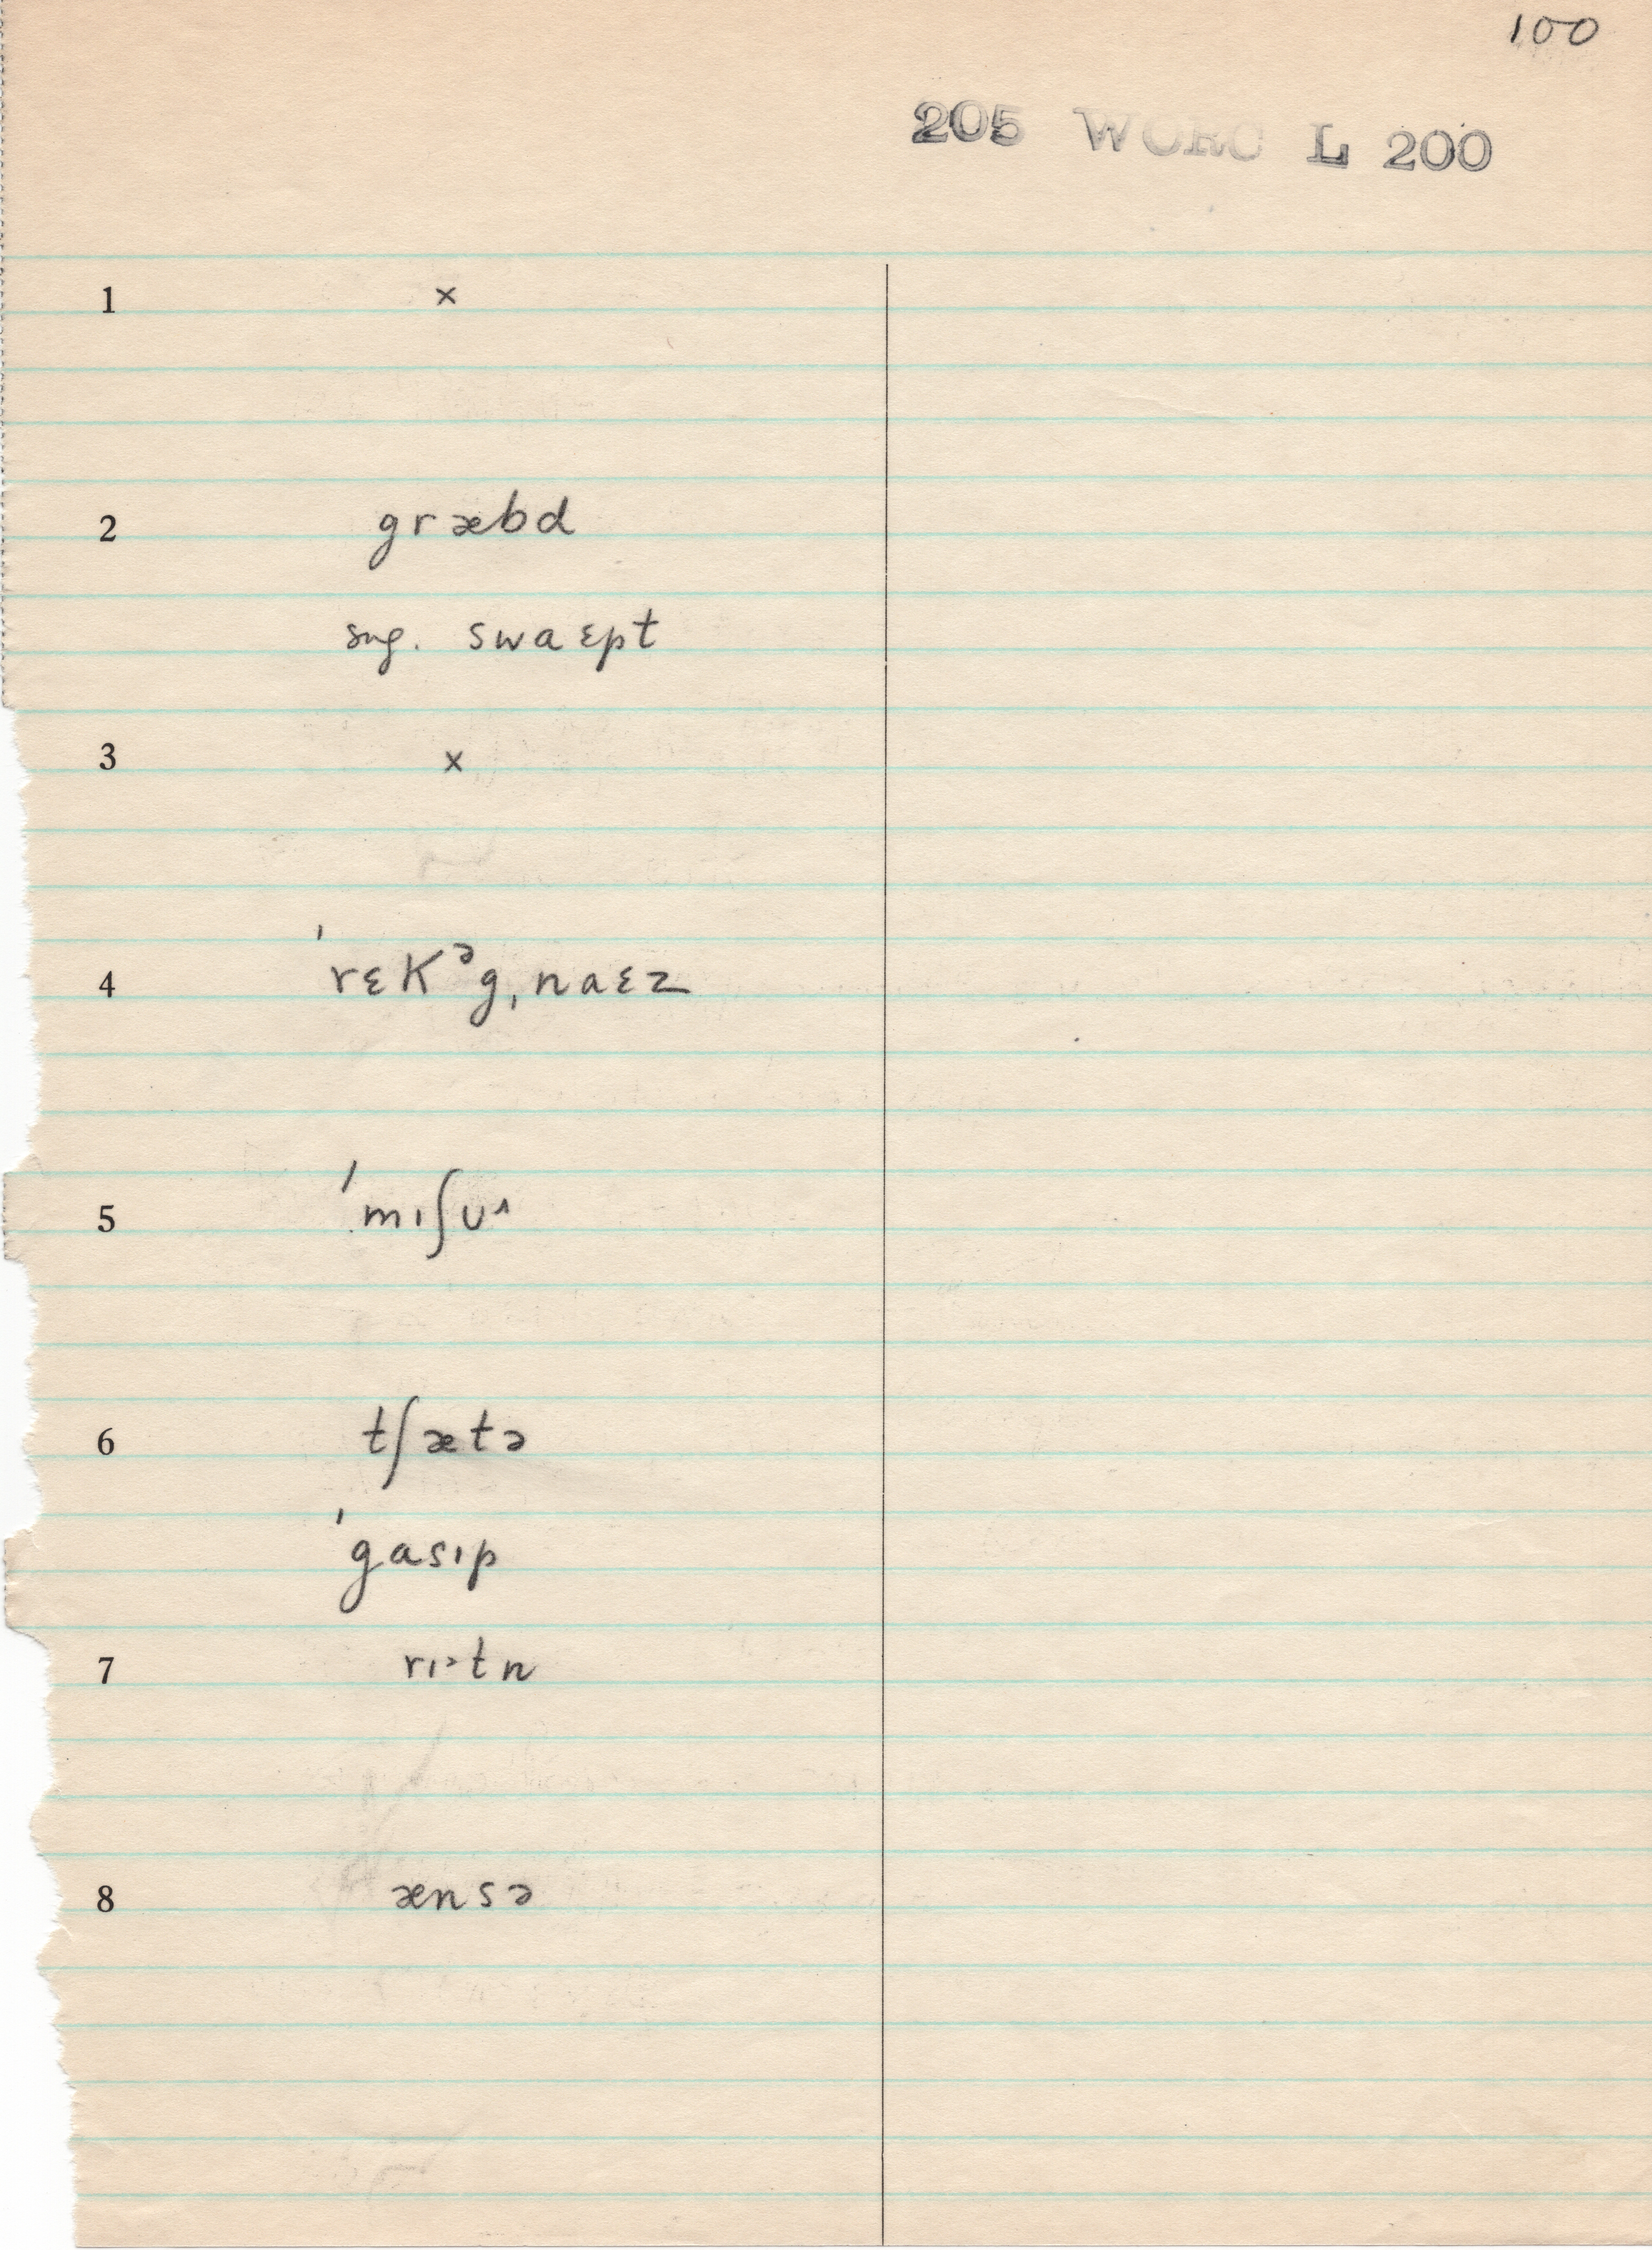 100
205 WORC L 200
1 ×
2 græbd
sug. swaɛpt
3 ×
4 ˈrɛkᵊgˌnaɛz
5 ˈmɪʃʊ˄
6 tʃætə
ˈgasɪp
7 rɪ>tn
8 ænsə